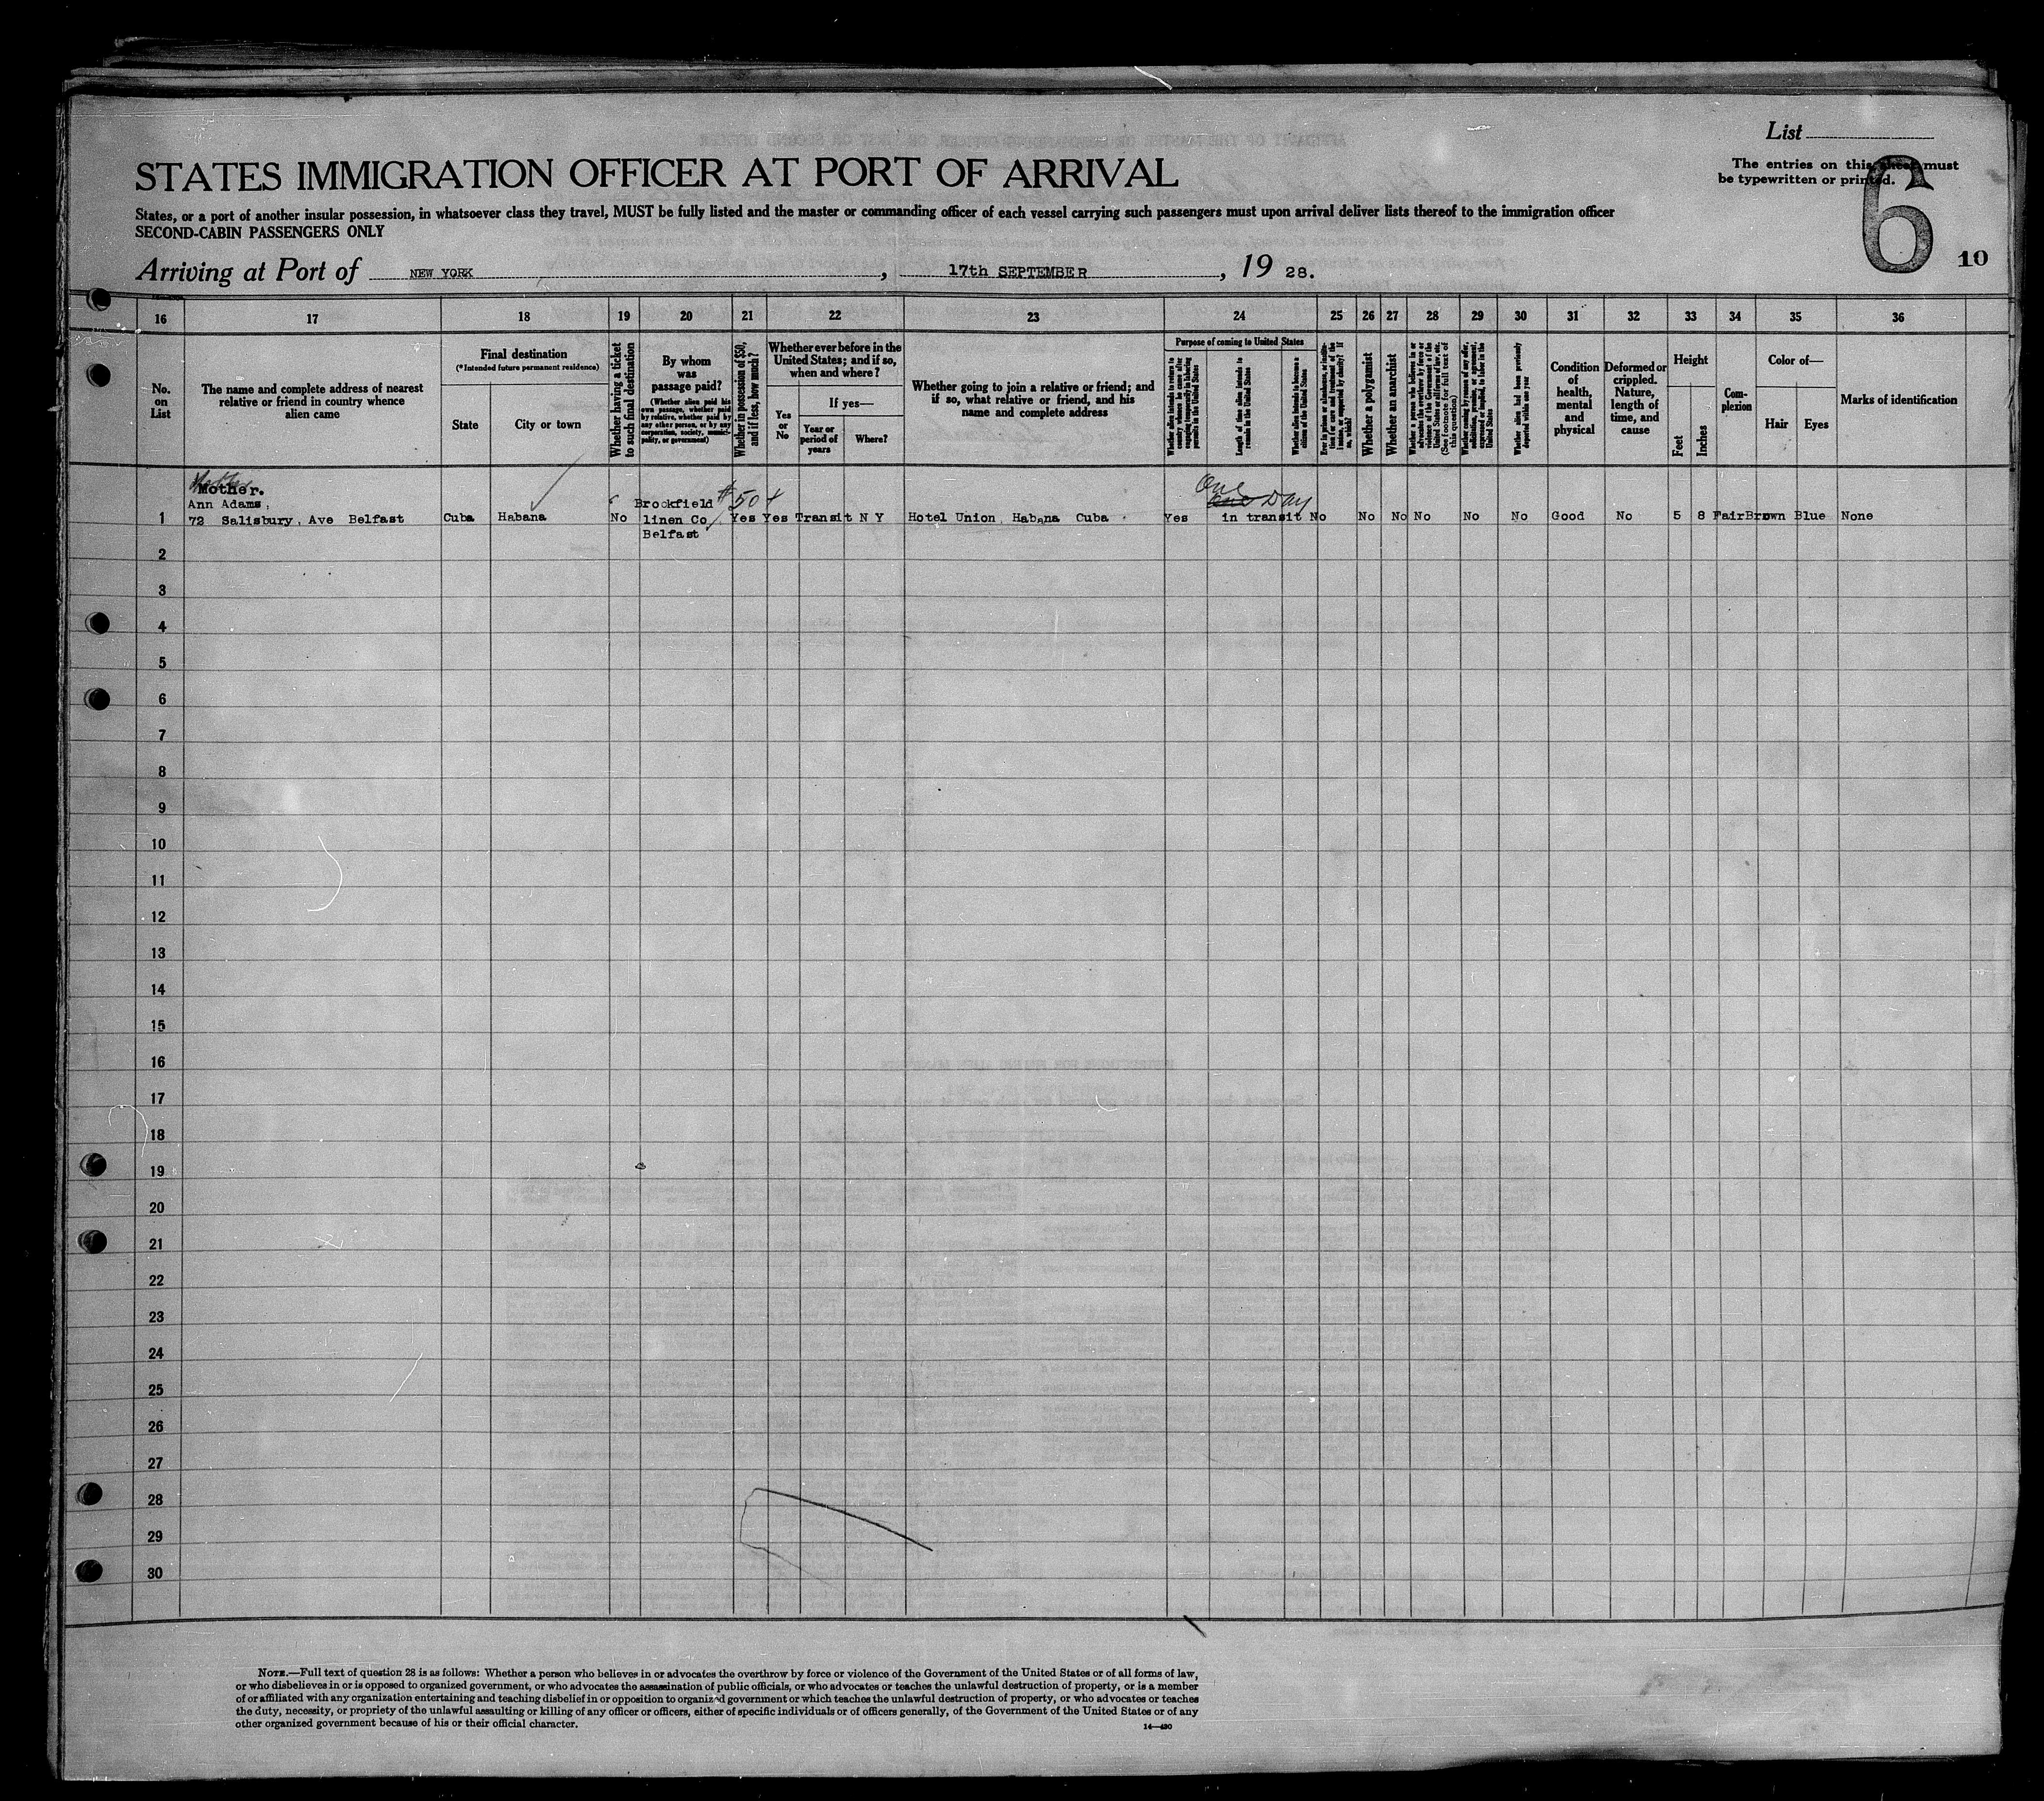 List
The entries on this sheet must
be typewritten or printed.
6
10
STATES IMMIGRATION OFFICER AT PORT OF ARRIVAL
States, or a port of another insular possession, in whatsoever class they travel, MUST be fully listed and the master or commanding officer of each vessel carrying such passengers must upon arrival deliver lists thereof to the immigration officer
SECOND-CABIN PASSENGERS ONLY
Arriving at Port of NEW YORK, 17th SEPTEMBER, 19 28.
16 17 18 19 20 21 22 23 24 25 26 27 28 29 30 31 32 33 34 35 36
No.
on
List
The name and complete address of nearest
relative or friend in country whence
alien came
Final destination
(*Intended future permanent residence)
State
City or town
Whether having a ticket
to such final destination
By whom
was
passage paid?
(Whether alien paid his
own passage, whether paid
by relative, whether paid by
any other person, or by any
corporation, society, munici-
pality, or government)
Whether in possession of $50,
and if less, how much?
Whether ever before in the
United States; and if so,
when and where?
Yes
or
No
If yes—
Year or
period of
years
Where?
Whether going to join a relative or friend; and
if so, what relative or friend, and his
name and complete address
Purpose of coming to United States
Whether alien intends to return to
country whence he came after
engaging temporarily in laboring
pursuits in the United States
Length of time alien intends to
remain in the United States
Whether alien intends to become a
citizen of the United States
Whether a polygamist
Whether an anarchist
Whether alien had been previously
deported within one year
Condition
of
health,
mental
and
physical
Deformed or
crippled.
Nature,
length of
time, and
cause
Height
Feet
Inches
Com-
plexion
Color of—
Hair
Eyes
Marks of identification
Mother.
Ann Adams,
One
One Day
$50+
Brookfield
1 72 Salisbury. Ave Belfast Cuba Habana No linen Co Yes Yes Transit N Y Hotel Union Habana Cuba Yes in transit No No No No No No Good No 5 8 Fair Brown Blue None
Belfast
2
3
4
5
6
7
8
9
10
11
12
13
14
15
16
17
18
19
20
21
22
23
24
25
26
27
28
29
30
NOTE.—Full text of question 28 is as follows: Whether a person who believes in or advocates the overthrow by force or violence of the Government of the United States or of all forms of law,
or who disbelieves in or is opposed to organized government, or who advocates the assassination of public officials, or who advocates or teaches the unlawful destruction of property, or is a member
of or affiliated with any organization entertaining and teaching disbelief in or opposition to organized government or which teaches the unlawful destruction of property, or who advocates or teaches
the duty, necessity, or propriety of the unlawful assaulting or killing of any officer or officers, either of specific individuals or of officers generally, of the Government of the United States or of any
other organized government because of his or their official character.
14—430